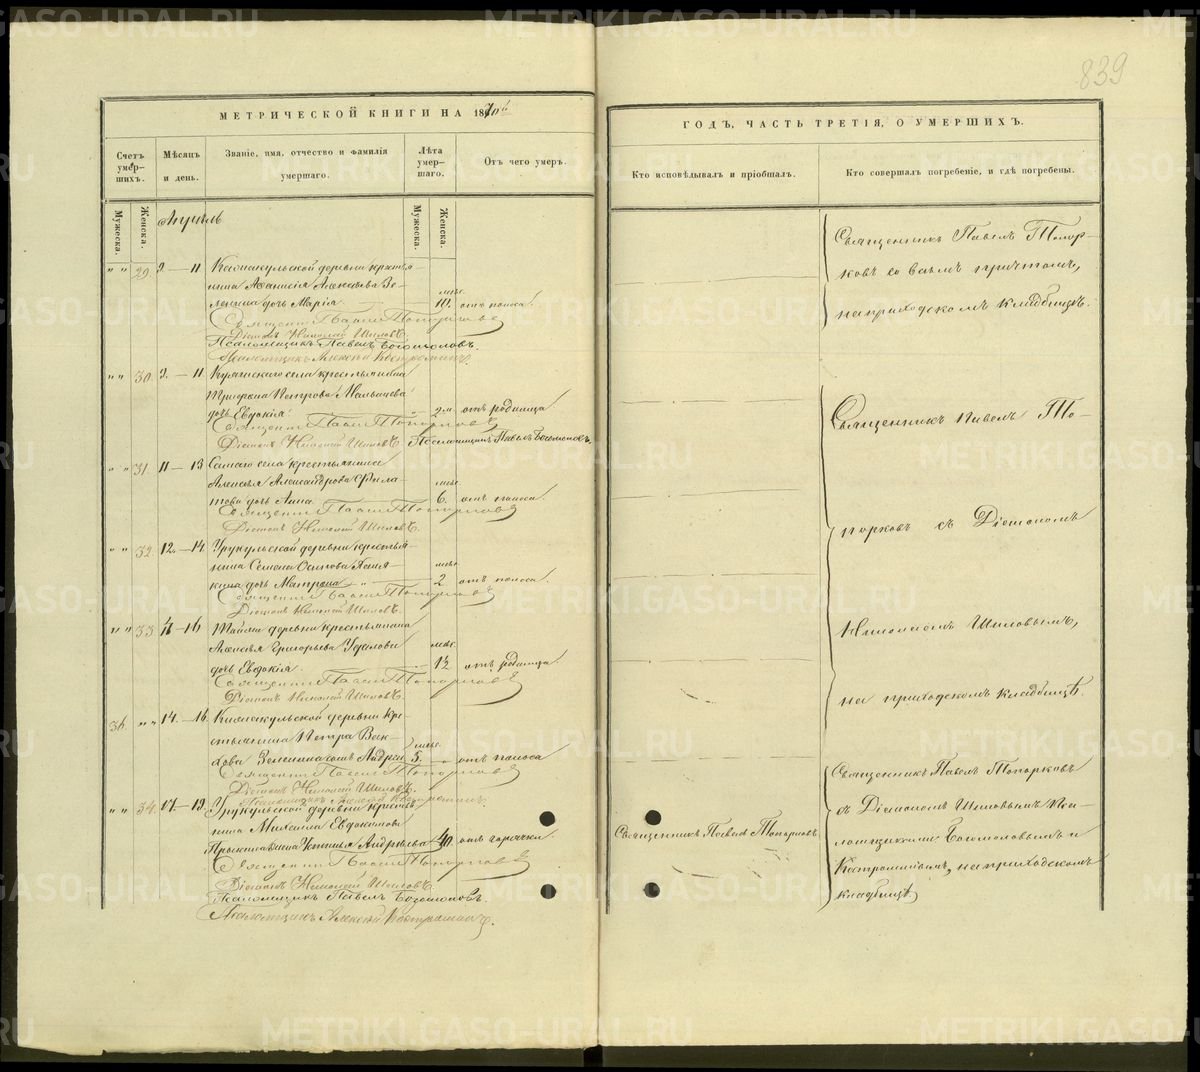 839
МЕТРИЧЕСКОЙ КНИГИ НА 1870й
Счетъ умер-шихъ.
Мѣсяцъ и день.
Званіе, имя, отчество и фамилія умершаго.
Лѣта умер-шаго.
Отъ чего умеръ.
Мужеска.
Женска.
Мужеска.
Женска.
Апрѣль
" " 29. 9.—11 деревни крестья-
нина Аѳанасія Алексѣева Зе-
ленина дочь Марія мѣс. 10. отъ поноса.
Священникъ Павелъ Топорковъ
Діаконъ Николай Шиловъ
Псаломщикъ Павелъ Богомоловъ.
Псаломщикъ Алексѣй Костроминъ.
" " 30. 9.—11. села крестьянина
Трифона Петрова
дочь Евдокія 2 м. отъ родимца
Священникъ Павелъ Топорковъ
Діаконъ Николай Шиловъ Псаломщикъ Павелъ Богомоловъ.
" " 31. 11—13 села крестьянина
Алексѣя Александрова Фила-
това дочь Анна мѣс. 6. отъ поноса.
Священникъ Павелъ Топорковъ
Діаконъ Николай Шиловъ.
" " 32. 12.—14. Урукульской деревни крестья-
нина Семена Осипова
дочь Матрона мѣс. 2 отъ поноса.
Священникъ Павелъ Топорковъ
Діаконъ Николай Шиловъ.
" " 33 —16. деревни крестьянина
Алексѣя Григорьева
дочь Евдокія. мѣс. отъ родимца
Священникъ Павелъ Топорковъ
Діаконъ Николай Шиловъ.
36. " " 14.—16. деревни кре-
стьянина Петра
Зеленина сынъ Андрей мѣс. 5. отъ поноса
Священникъ Павелъ Топорковъ
Діаконъ Николай Шиловъ.
Псаломщикъ Алексѣй Костроминъ.
" " 34. 17—19. Урукульской деревни крестья-
нина Михаила Евдокимова
жена Устинья Андрѣева 40. отъ горячки.
Священникъ Павелъ Топорковъ
Діаконъ Николай Шиловъ.
Псаломщикъ Павелъ Богомоловъ.
Псаломщикъ Алексѣй Костроминъ.
ГОДЪ, ЧАСТЬ ТРЕТІЯ, О УМЕРШИХЪ.
Кто исповѣдывалъ и пріобщалъ.
Кто совершалъ погребеніе, и гдѣ погребены.
Священникъ Павелъ Топор-
ковъ со всѣмъ причтомъ,
на приходскомъ кладбищѣ.
Священникъ Павелъ То-
порковъ съ Діакономъ
Николаемъ Шиловымъ,
на приходскомъ кладбищѣ.
Священникъ Павелъ Топорковъ
Священникъ Павелъ Топорковъ
съ Діакономъ Шиловымъ Пса-
ломщиками Богомоловымъ и
Костроминымъ, на приходскомъ
кладбищѣ.
METRIKI.GASO-URAL.RU